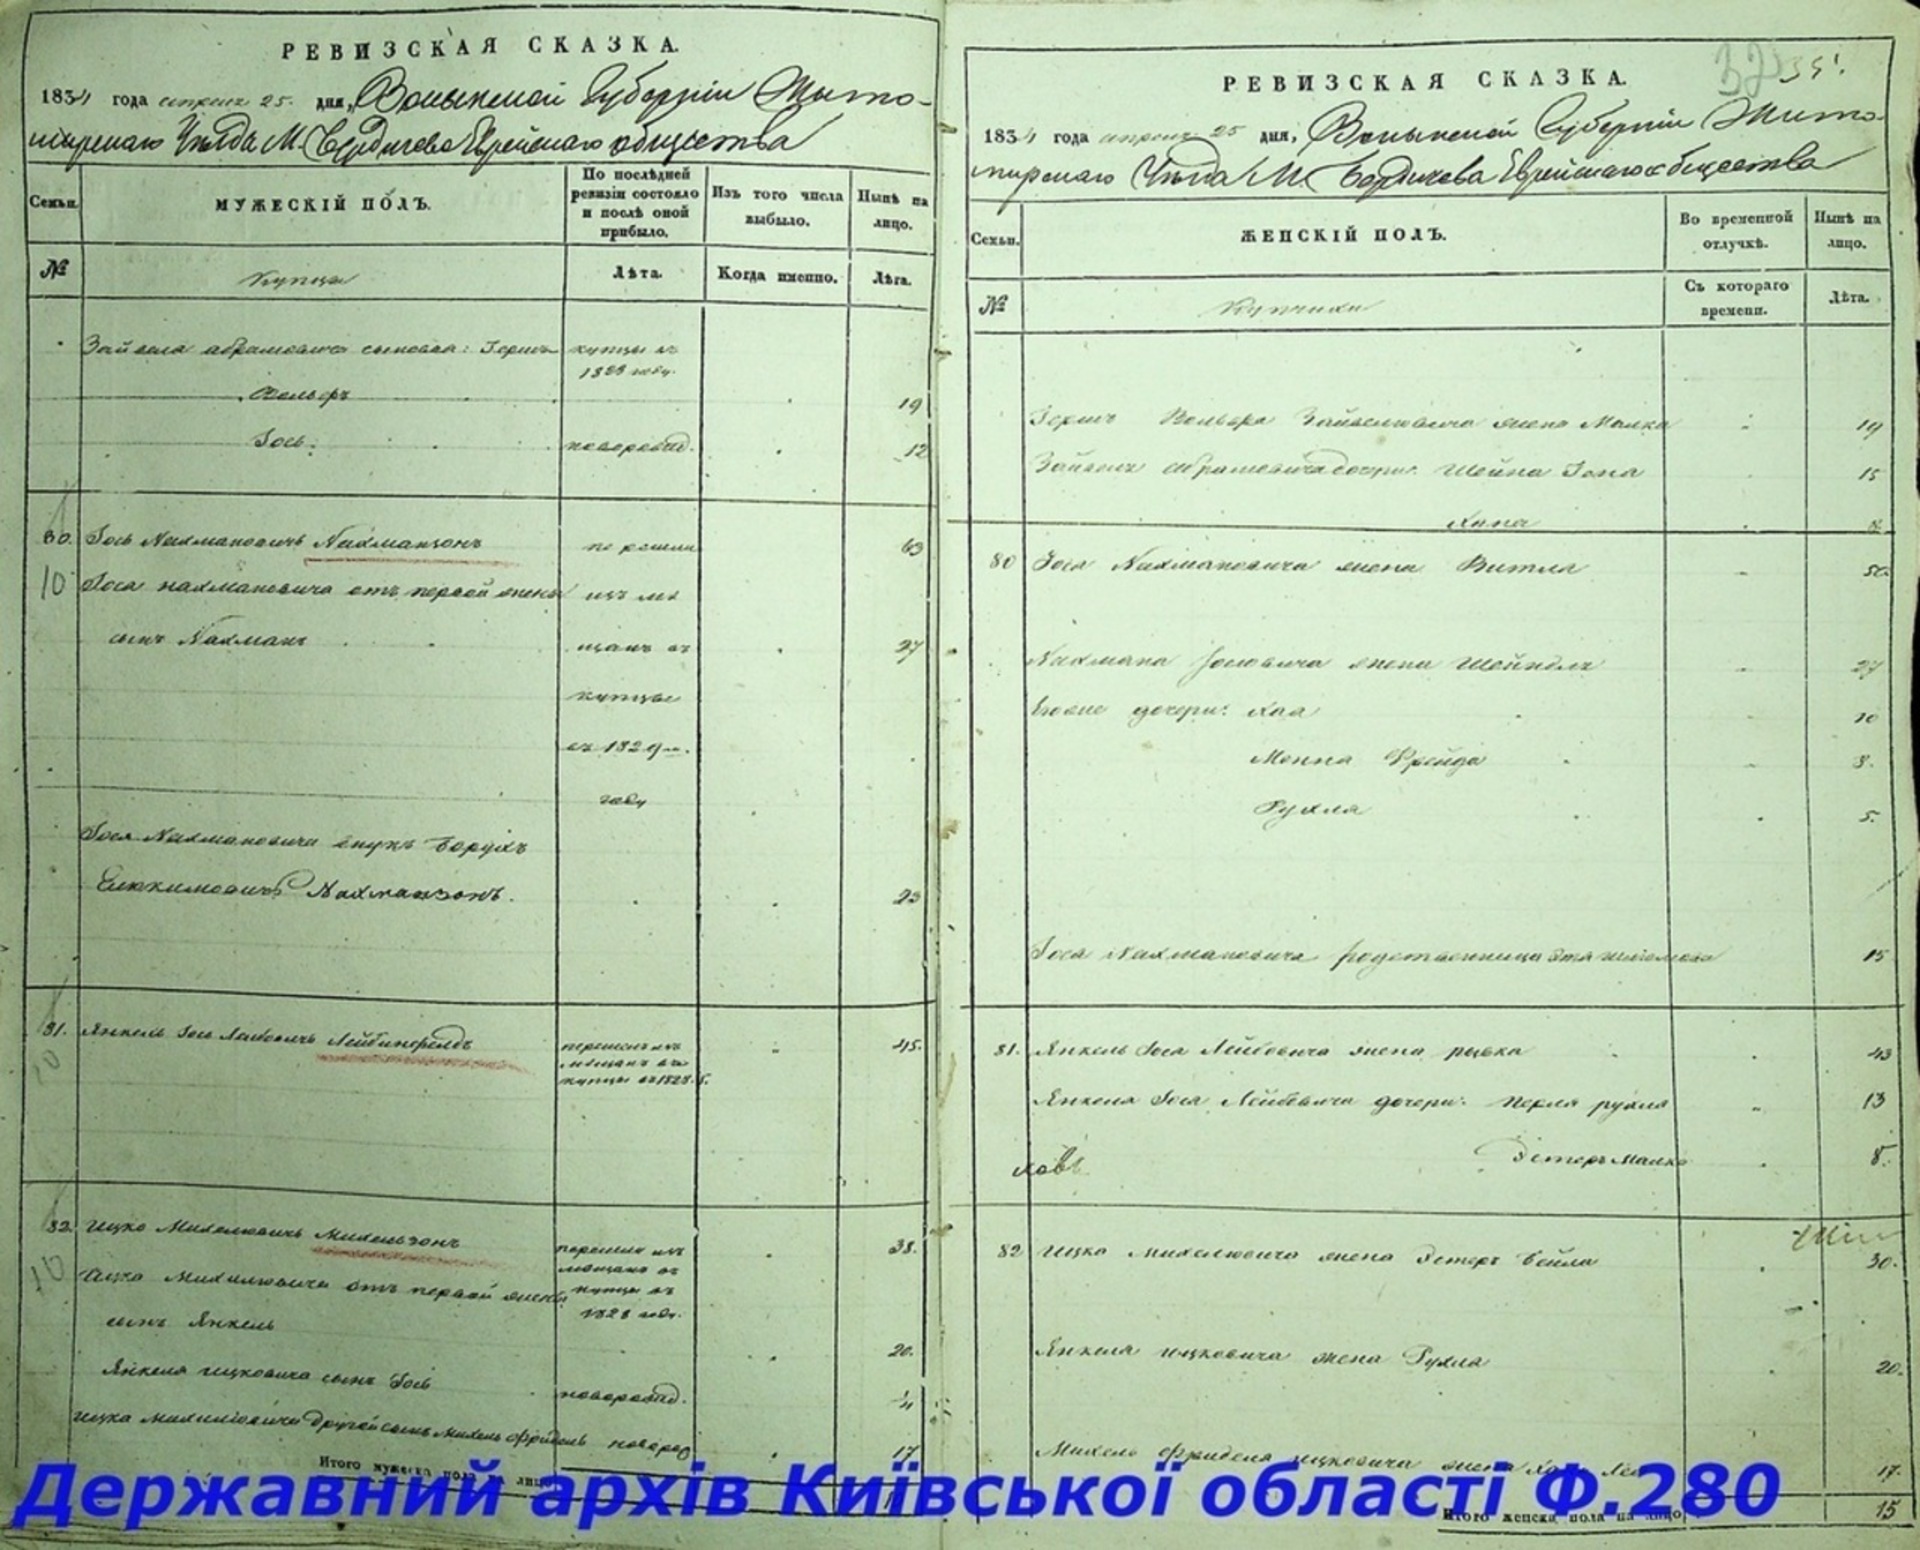 РЕВИЗСКАЯ СКАЗКА.
1834 года апреля 25. дня, Волынской Губернии Жито-
мирскаго Уезда М. Бердичева Еврейскаго общества
Семьи.
МУЖЕСКІЙ ПОЛЪ.
По послѣдней ревизіи состояло и послѣ оной прибыло.
Изъ того числа выбыло.
Нынѣ на лицо.
№
Купцы
Лѣта.
Когда именно.
Лѣта.
Зайвеля Абрамовича сыновья: Герш
купцы въ
1828 году.
Вольфъ
19
Іось
новорожд.
12
80. Іось Нахмановичъ Нахманзонъ
перешли
63
10
Іося Нахмановича отъ первой жены
изъ мѣ
сынъ Нахманъ
щанъ въ
27
купцы
въ 1829 м.
году
Іося Нахмановича внукъ Борухъ
Нахманзонъ.
23
81. Янкель Іось Лейбовичъ Лейбинфельдъ
перешелъ изъ
45.
мѣщанъ въ
купцы въ 1828 г.
82. Ицко Михелевичъ Михельзонъ
перешли изъ
38.
мѣщанъ въ
10
Ицка Михелевича отъ первой жены
купцы въ
1828 году.
сынъ Янкель
20.
Янкеля Ицковича сынъ Іось
новорожд.
4
Ицка Михелевича другой сынъ Михель Фридель
новорож
17
Итого мужеска пола на лицо
РЕВИЗСКАЯ СКАЗКА.
1834 года апреля 25 дня, Волынской Губернии Жито-
мирскаго Уезда М. Бердичева Еврейскаго общества
Семьи.
ЖЕНСКІЙ ПОЛЪ.
Во временной отлучкѣ.
Нынѣ на лицо.
№
Купчихи
Съ котораго времени.
Лѣта.
Герш Вольфа Зайвелевича жена Малка
19
Зайвеля Абрамовича дочери: Шейна
15
Хана
80 Іося Нахмановича жена Витля
50.
Нахмана Іосевича жена Шейндля
27
Его же дочери: Хая
10
Менна Фрейда
8.
Рухля
5.
Іося Нахмановича родственница
15
81. Янкель Іося Лейбовича жена Рывка
43
Янкеля Іося Лейбовича дочери: Перля Рухля
13
Эстеръ Малка
8.
82 Ицка Михелевича жена Эстеръ Бейла
30.
Янкеля Ицковича жена Рухля
20.
Михель Фриделя Ицковича жена
17.
Итого женска пола на лицо
15
Державний архів Київської області Ф.280